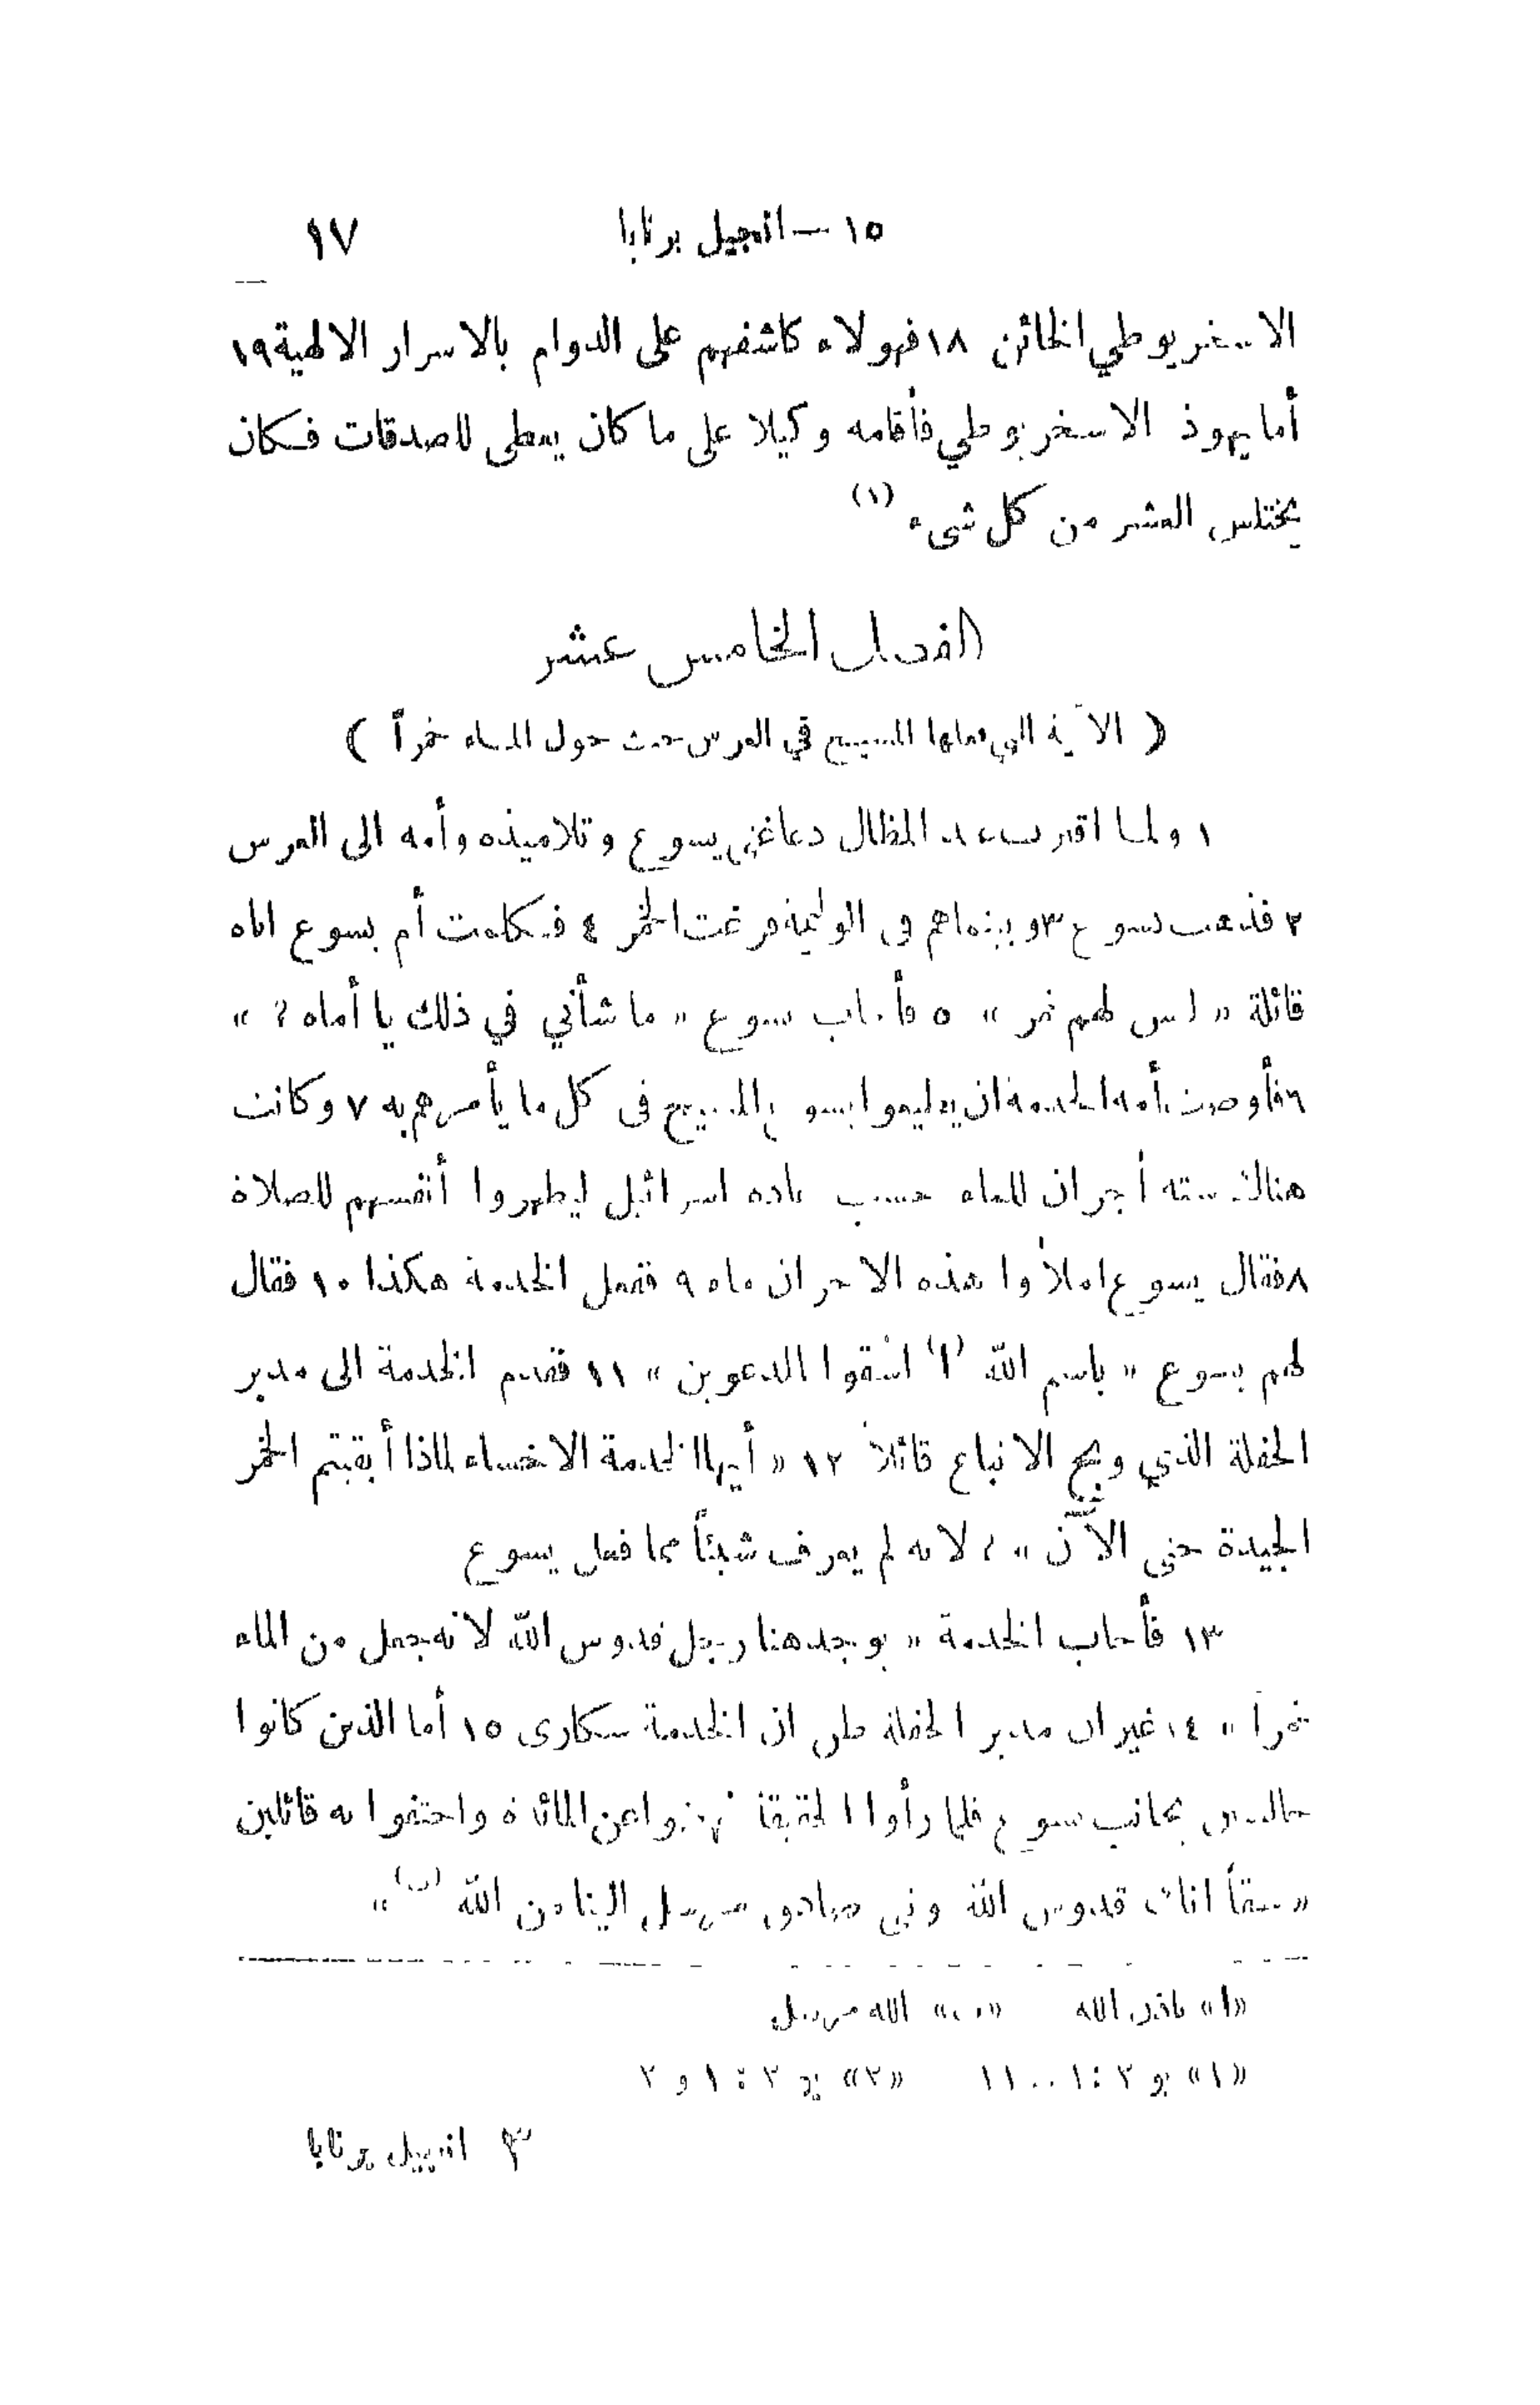 ١٥ — انجيل برنابا ١٧
الاسخريوطي الخائن ١٨ فهولاء كاشفهم على الدوام بالاسرار الالهية ١٩
أما يهوذ الاسخريوطي فأقامه وكيلا على ما كان يعطى للصدقات فكان
يختلس العشر من كل شيء (١)
الفصل الخامس عشر
( الآية التي فعلها المسيح في العرس حيث حول الماء خمراً )
١ ولما اقترب عيد المظال دعا غني يسوع وتلاميذه وأمه الى العرس
٢ فذهب يسوع ٣ و بينما هم في الوليمة فرغت الخمر ٤ فكلمت أم يسوع اياه
قائلة « ليس لهم خمر » ٥ فأجاب يسوع « ما شأني في ذلك يا أماه ؟ »
٦ فأوصت أمه الخدمة ان يطيعوا يسوع المسيح في كل ما يأمرهم به ٧ وكانت
هناك ستة أجران للماء حسب عادة اسرائيل ليطهروا أنفسهم للصلاة
٨ فقال يسوع املأوا هذه الاجران ماء ٩ ففعل الخدمة هكذا ١٠ فقال
لهم يسوع « باسم الله (ا) اسقوا المدعوين » ١١ فقدم الخدمة الى مدبر
الحفلة الذي وبخ الاتباع قائلاً ١٢ « أيها الخدمة الاخساء لماذا أبقيتم الخمر
الجيدة حتى الآن » ؟ لانه لم يعرف شيئاً مما فعل يسوع
١٣ فأجاب الخدمة « يوجد هنا رجل قدوس الله لانه جعل من الماء
خمراً » ١٤ غير ان مدبر الحفلة ظن ان الخدمة سكارى ١٥ أما الذين كانوا
جالسين بجانب يسوع فلما رأوا الحقيقة نهضوا عن المائدة واحتفوا به قائلين
« حقاً انك قدوس الله ونبي صادق مرسل الينا من الله (ب) »
«ا» باذن الله «ب» الله مرسل
«١» يو ٢ : ١ .. ١١ «٢» يو ٢ : ١ و ٢
٣ انجيل برنابا